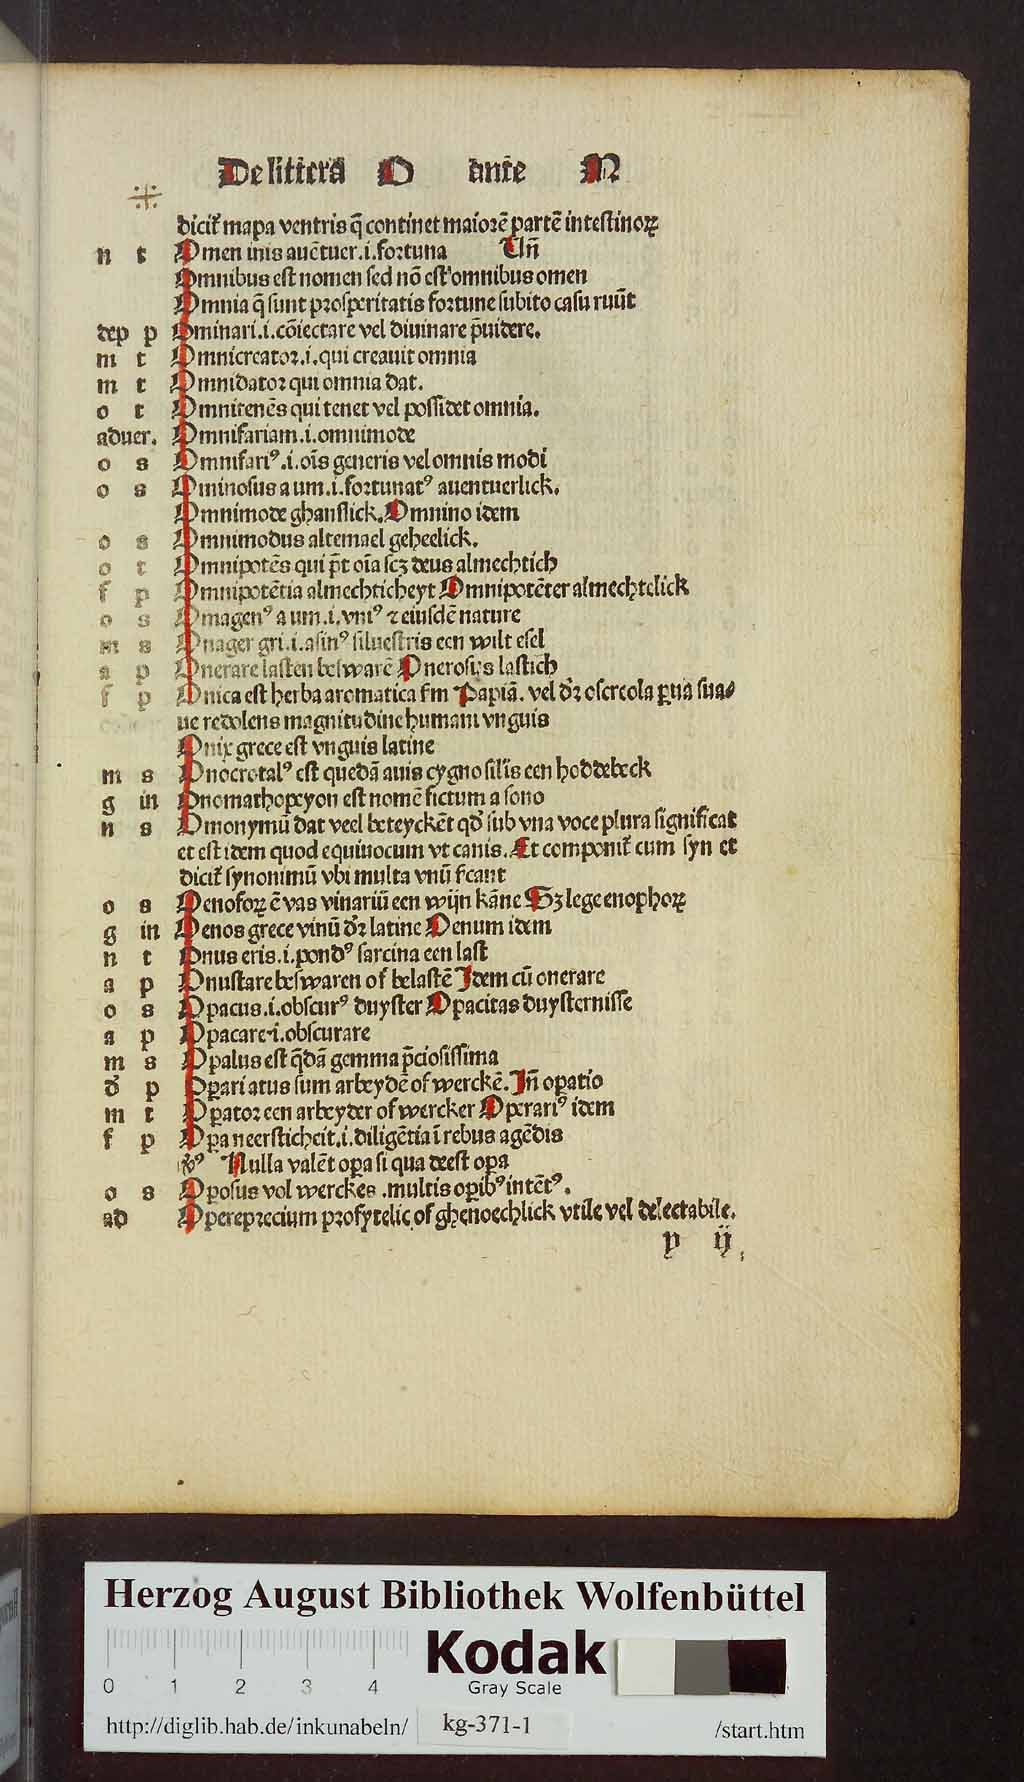 De litterā O ante N
dicit᷑ mapa ventris q̄ continet maiorē partē intestinoꝝ
n t Omen inis auētuer .i. fortuna Un̄
Omnibus est nomen sed nō est omnibus omen
Omnia q̄ sunt prosperitatis fortune subito casu ruūt
dep p Ominari .i. cōiectare vel diuinare p̄uidere.
m t Omnicreator .i. qui creauit omnia
m t Omnidator qui omnia dat.
o t Omnitenēs qui tenet vel possidet omnia.
aduer. Omnifariam .i. omnimode
o s Omnifariꝰ .i. oīs generis vel omnis modi
o s Ominosus a um .i. fortunatꝰ auentuerlick.
Omnimode ghanslick. Omnino idem
o s Omnimodus altemael geheelick.
o t Omnipotēs qui p̄t oīa scꝫ deus almechtich
f p Omnipotētia almechticheyt Omnipotēter almechtelick
o s Omagenꝰ a um .i. vniꝰ ⁊ eiusdē nature
m s Onager gri .i. asinꝰ siluestris een wilt esel
a p Onerare lasten beswarē Onerosus lastich
f p Onica est herba aromatica fm Papiā. vel dr̄ osereola ꝑua sua⸗
ue redolens magnitudine humani vnguis
Onix grece est vnguis latine
m s Onocrotalꝰ est quedā auis cygno silīs een hoddebeck
g in Onomathopeyon est nomē fictum a sono
n s Omonymū dat veel beteyckēt qd̄ sub vna voce plura significat
et est idem quod equiuocum vt canis. Et componit᷑ cum syn et
dicit᷑ synonimū vbi multa vnū fcant
o s Oenoforꝝ ē vas vinariū een wijn kāne Sꝫ lege enophorꝝ
g in Oenos grece vinū dr̄ latine Oenum idem
n t Onus eris .i. pondꝰ sarcina een last
a p Onustare beswaren of belastē Idem cū onerare
o s Opacus .i. obscurꝰ duyster Opacitas duysternisse
a p Opacare .i. obscurare
m s Opalus est q̄dā gemma p̄ciosissima
d' p Oꝑari atus sum arbeydē of werckē. Jn̄ oꝑatio
m t Oꝑator een arbeyder of wercker Operariꝰ idem
f p Oꝑa neersticheit .i. diligētia ī rebus agēdis
v̄ꝰ Nulla valēt oꝑa si qua deest oꝑa
o s Oꝑosus vol werckes . multis oꝑibꝰ intētꝰ.
ad Opereprecium profytelic of ghenoechlick vtile vel delectabile.
y ij
Herzog August Bibliothek Wolfenbüttel
0 1 2 3 4
Kodak
Gray Scale
http://diglib.hab.de/inkunabeln/ kg-371-1 /start.htm